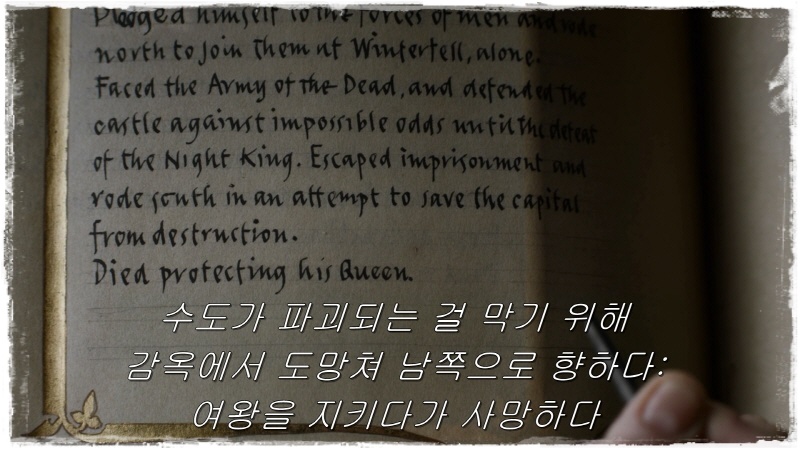 Pledged himself to the forces of men and rode
north to join them at Winterfell, alone.
Faced the Army of the Dead, and defended the
castle against impossible odds until the defeat
of the Night King. Escaped imprisonment and
rode south in an attempt to save the capital
from destruction.
Died protecting his Queen.
수도가 파괴되는 걸 막기 위해
감옥에서 도망쳐 남쪽으로 향하다:
여왕을 지키다가 사망하다